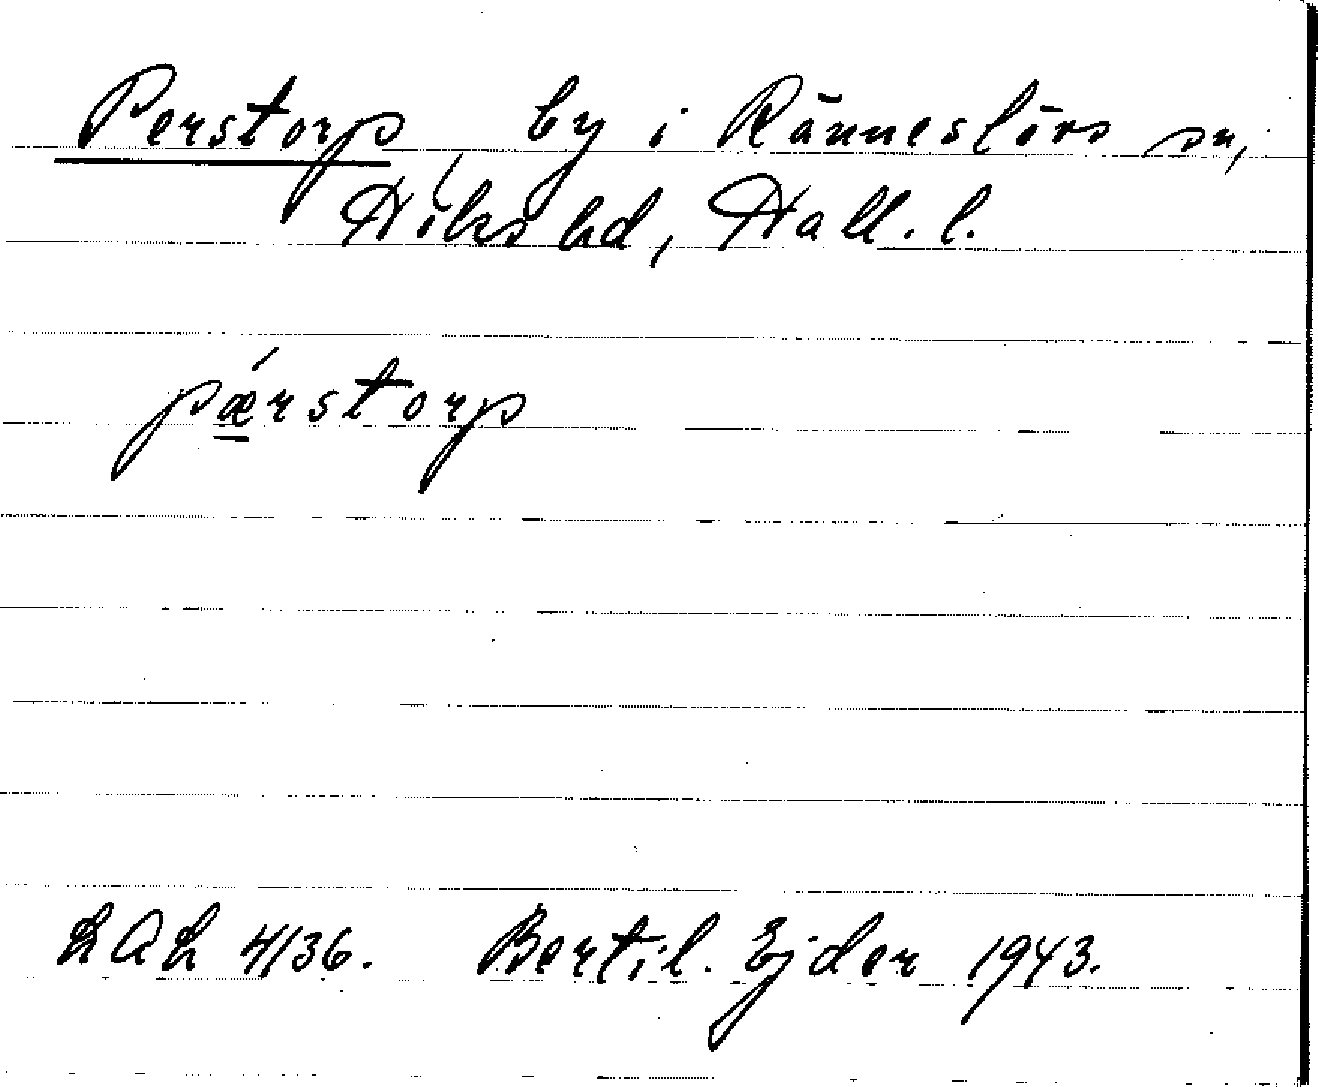 Perstorp by i Ränneslövs sn,
Höks hd, Hall. l.
pǽrstorp
LAL 4136. Bertil Ejder 1943.